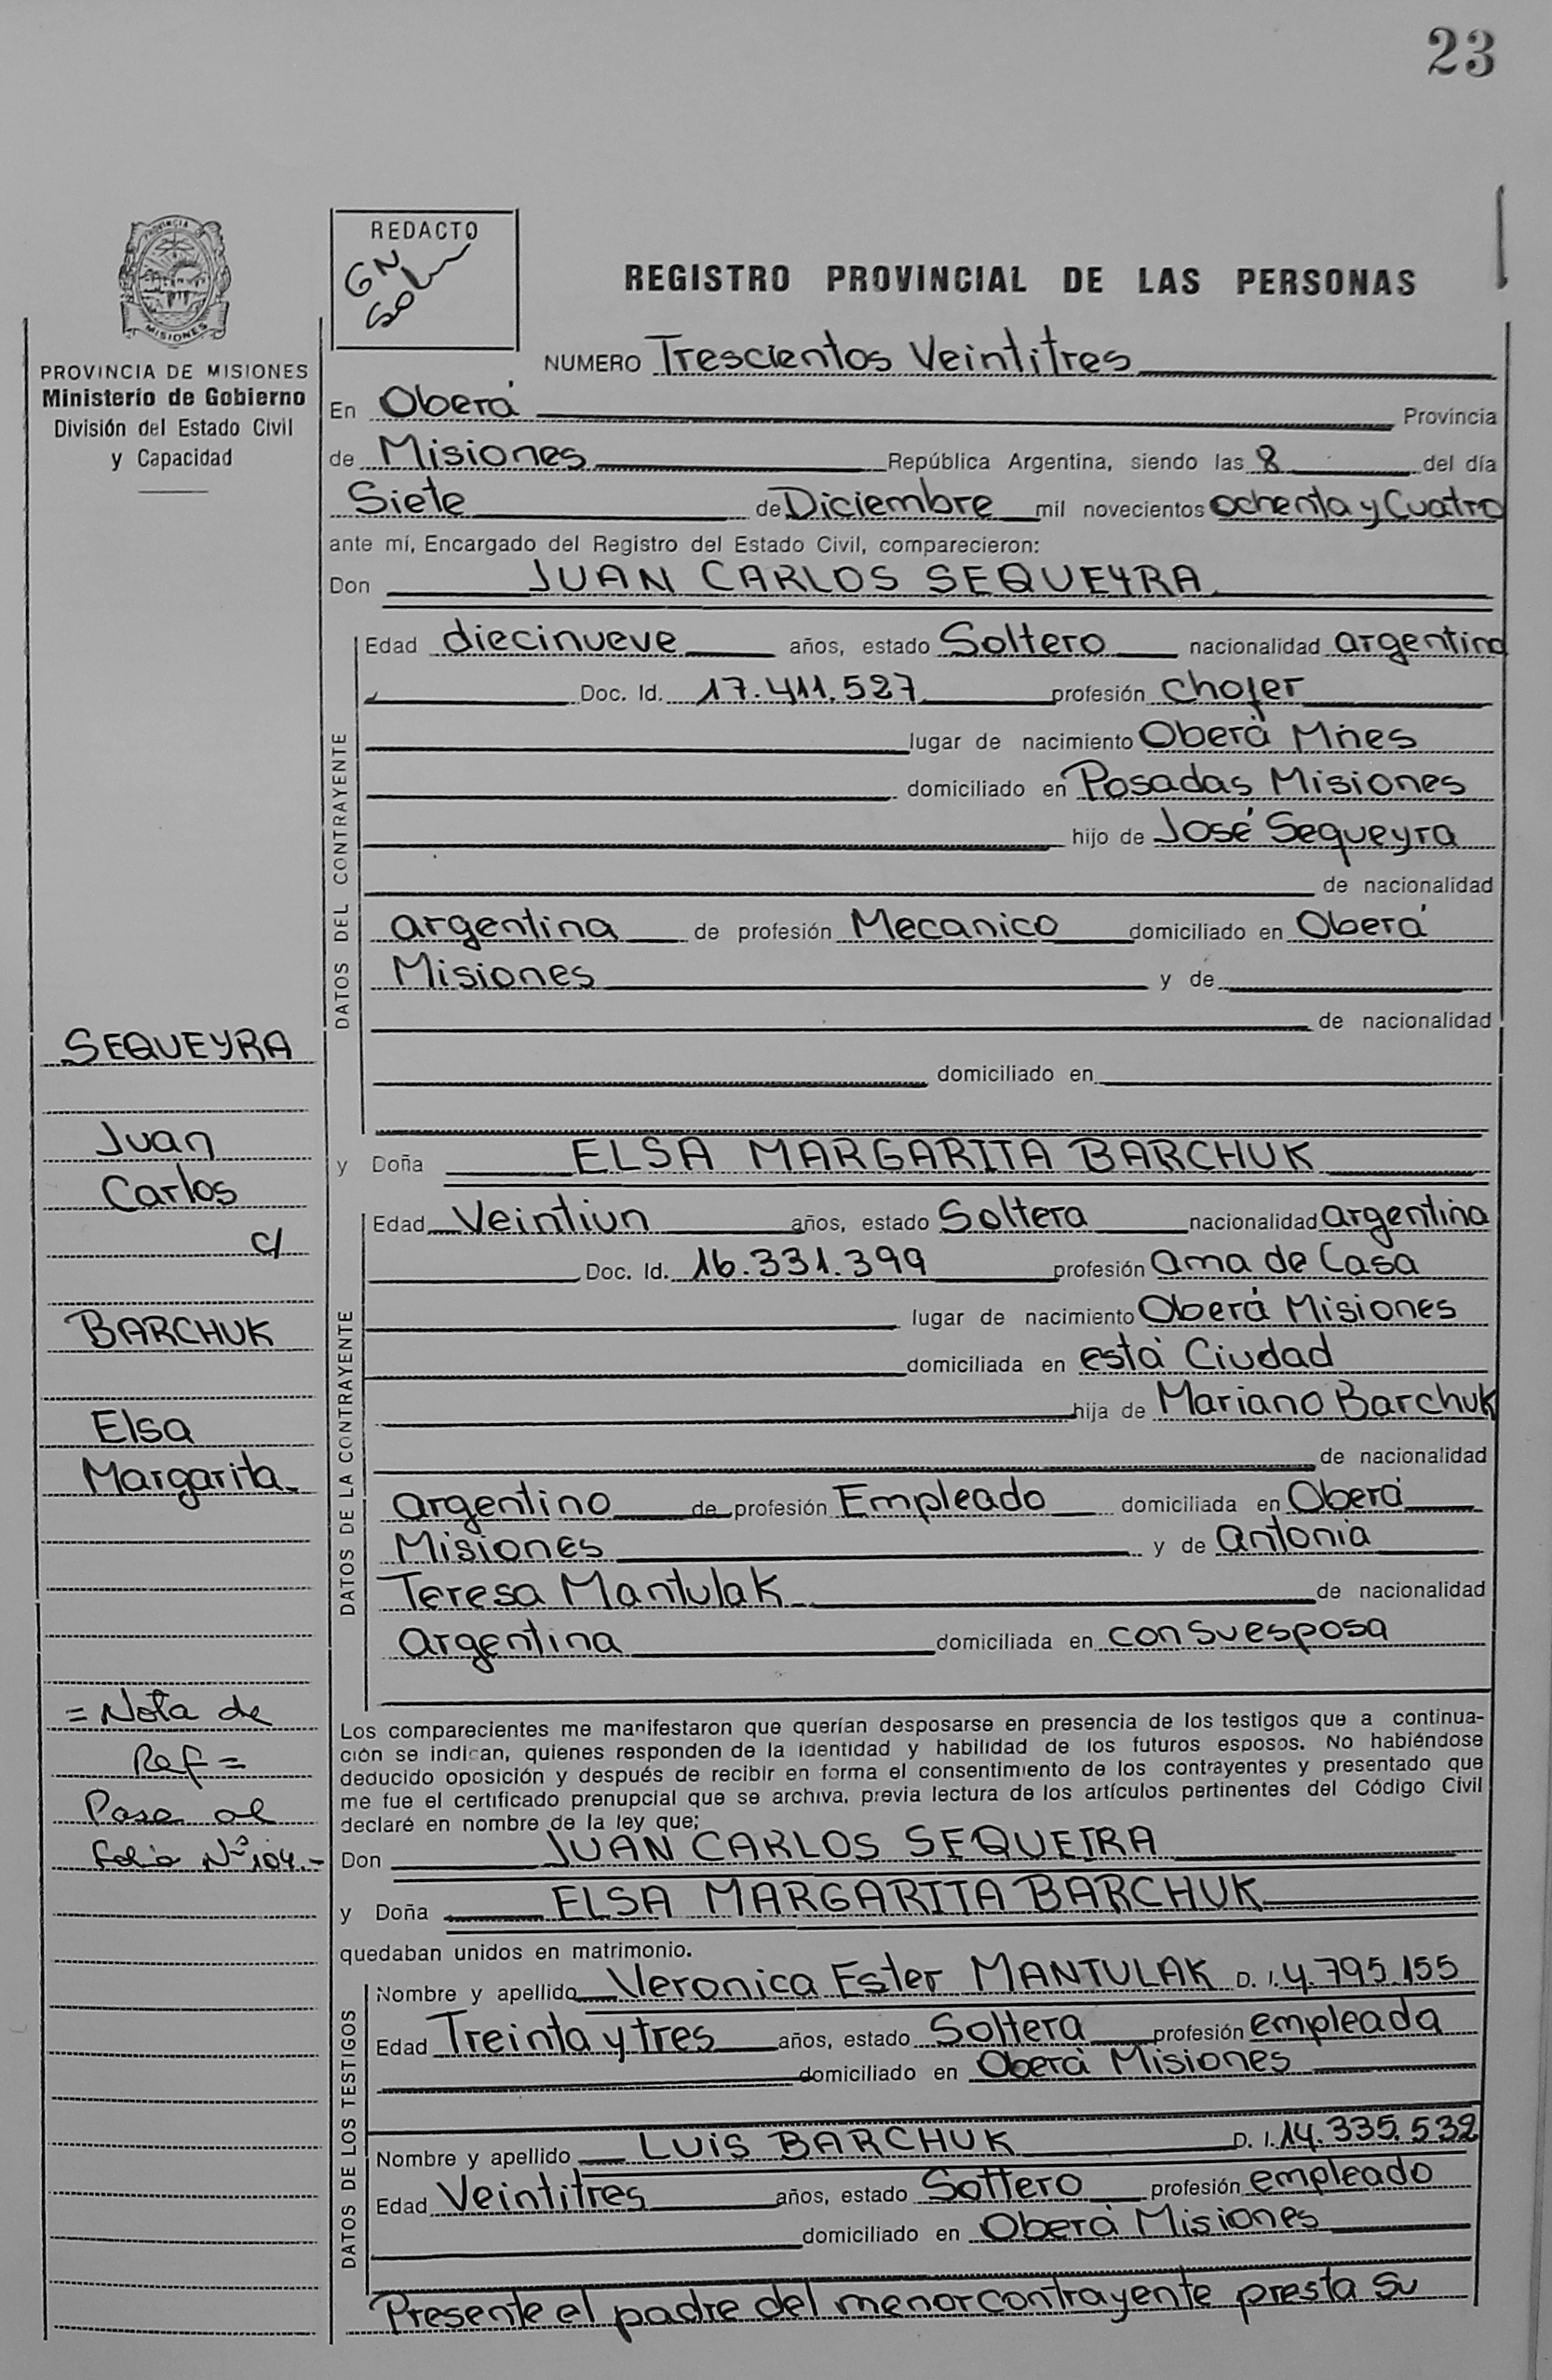 23
PROVINCIA
MISIONES
PROVINCIA DE MISIONES
Ministerio de Gobierno
División del Estado Civil
y Capacidad
REDACTO
GN
REGISTRO PROVINCIAL DE LAS PERSONAS
NUMERO Trescientos Veintitres
En Oberá Provincia
de Misiones República Argentina, siendo las 8 del día
Siete de Diciembre mil novecientos ochenta y Cuatro
ante mí, Encargado del Registro del Estado Civil, comparecieron:
Don JUAN CARLOS SEQUEYRA
DATOS DEL CONTRAYENTE
Edad diecinueve años, estado Soltero nacionalidad argentina
Doc. Id. 17.411.527 profesión chofer
lugar de nacimiento Oberá Mnes
domiciliado en Posadas Misiones
hijo de José Sequeyra
de nacionalidad
argentina de profesión Mecanico domiciliado en Oberá
Misiones y de
de nacionalidad
domiciliado en
y Doña ELSA MARGARITA BARCHUK
DATOS DE LA CONTRAYENTE
Edad Veintiun años, estado Soltera nacionalidad argentina
Doc. Id. 16.331.399 profesión ama de Casa
lugar de nacimiento Oberá Misiones
domiciliada en está Ciudad
hija de Mariano Barchuk
de nacionalidad
argentino de profesión Empleado domiciliada en Oberá
Misiones y de antonia
Teresa Mantulak de nacionalidad
argentina domiciliada en con su esposa
Los comparecientes me manifestaron que querían desposarse en presencia de los testigos que a continua-
ción se indican, quienes responden de la identidad y habilidad de los futuros esposos. No habiéndose
deducido oposición y después de recibir en forma el consentimiento de los contrayentes y presentado que
me fue el certificado prenupcial que se archiva, previa lectura de los artículos pertinentes del Código Civil
declaré en nombre de la ley que;
Don JUAN CARLOS SEQUEIRA
y Doña ELSA MARGARITA BARCHUK
quedaban unidos en matrimonio.
DATOS DE LOS TESTIGOS
Nombre y apellido Veronica Ester MANTULAK D. I. 4.795.155
Edad Treinta y tres años, estado Soltera profesión empleada
domiciliado en Oberá Misiones
Nombre y apellido LUIS BARCHUK D. I. 14.335.532
Edad Veintitres años, estado Soltero profesión empleado
domiciliado en Oberá Misiones
Presente el padre del menor contrayente presta su
SEQUEYRA
Juan
Carlos
c/
BARCHUK
Elsa
Margarita
= Nota de
Ref =
Pase al
folio Nº 104.-